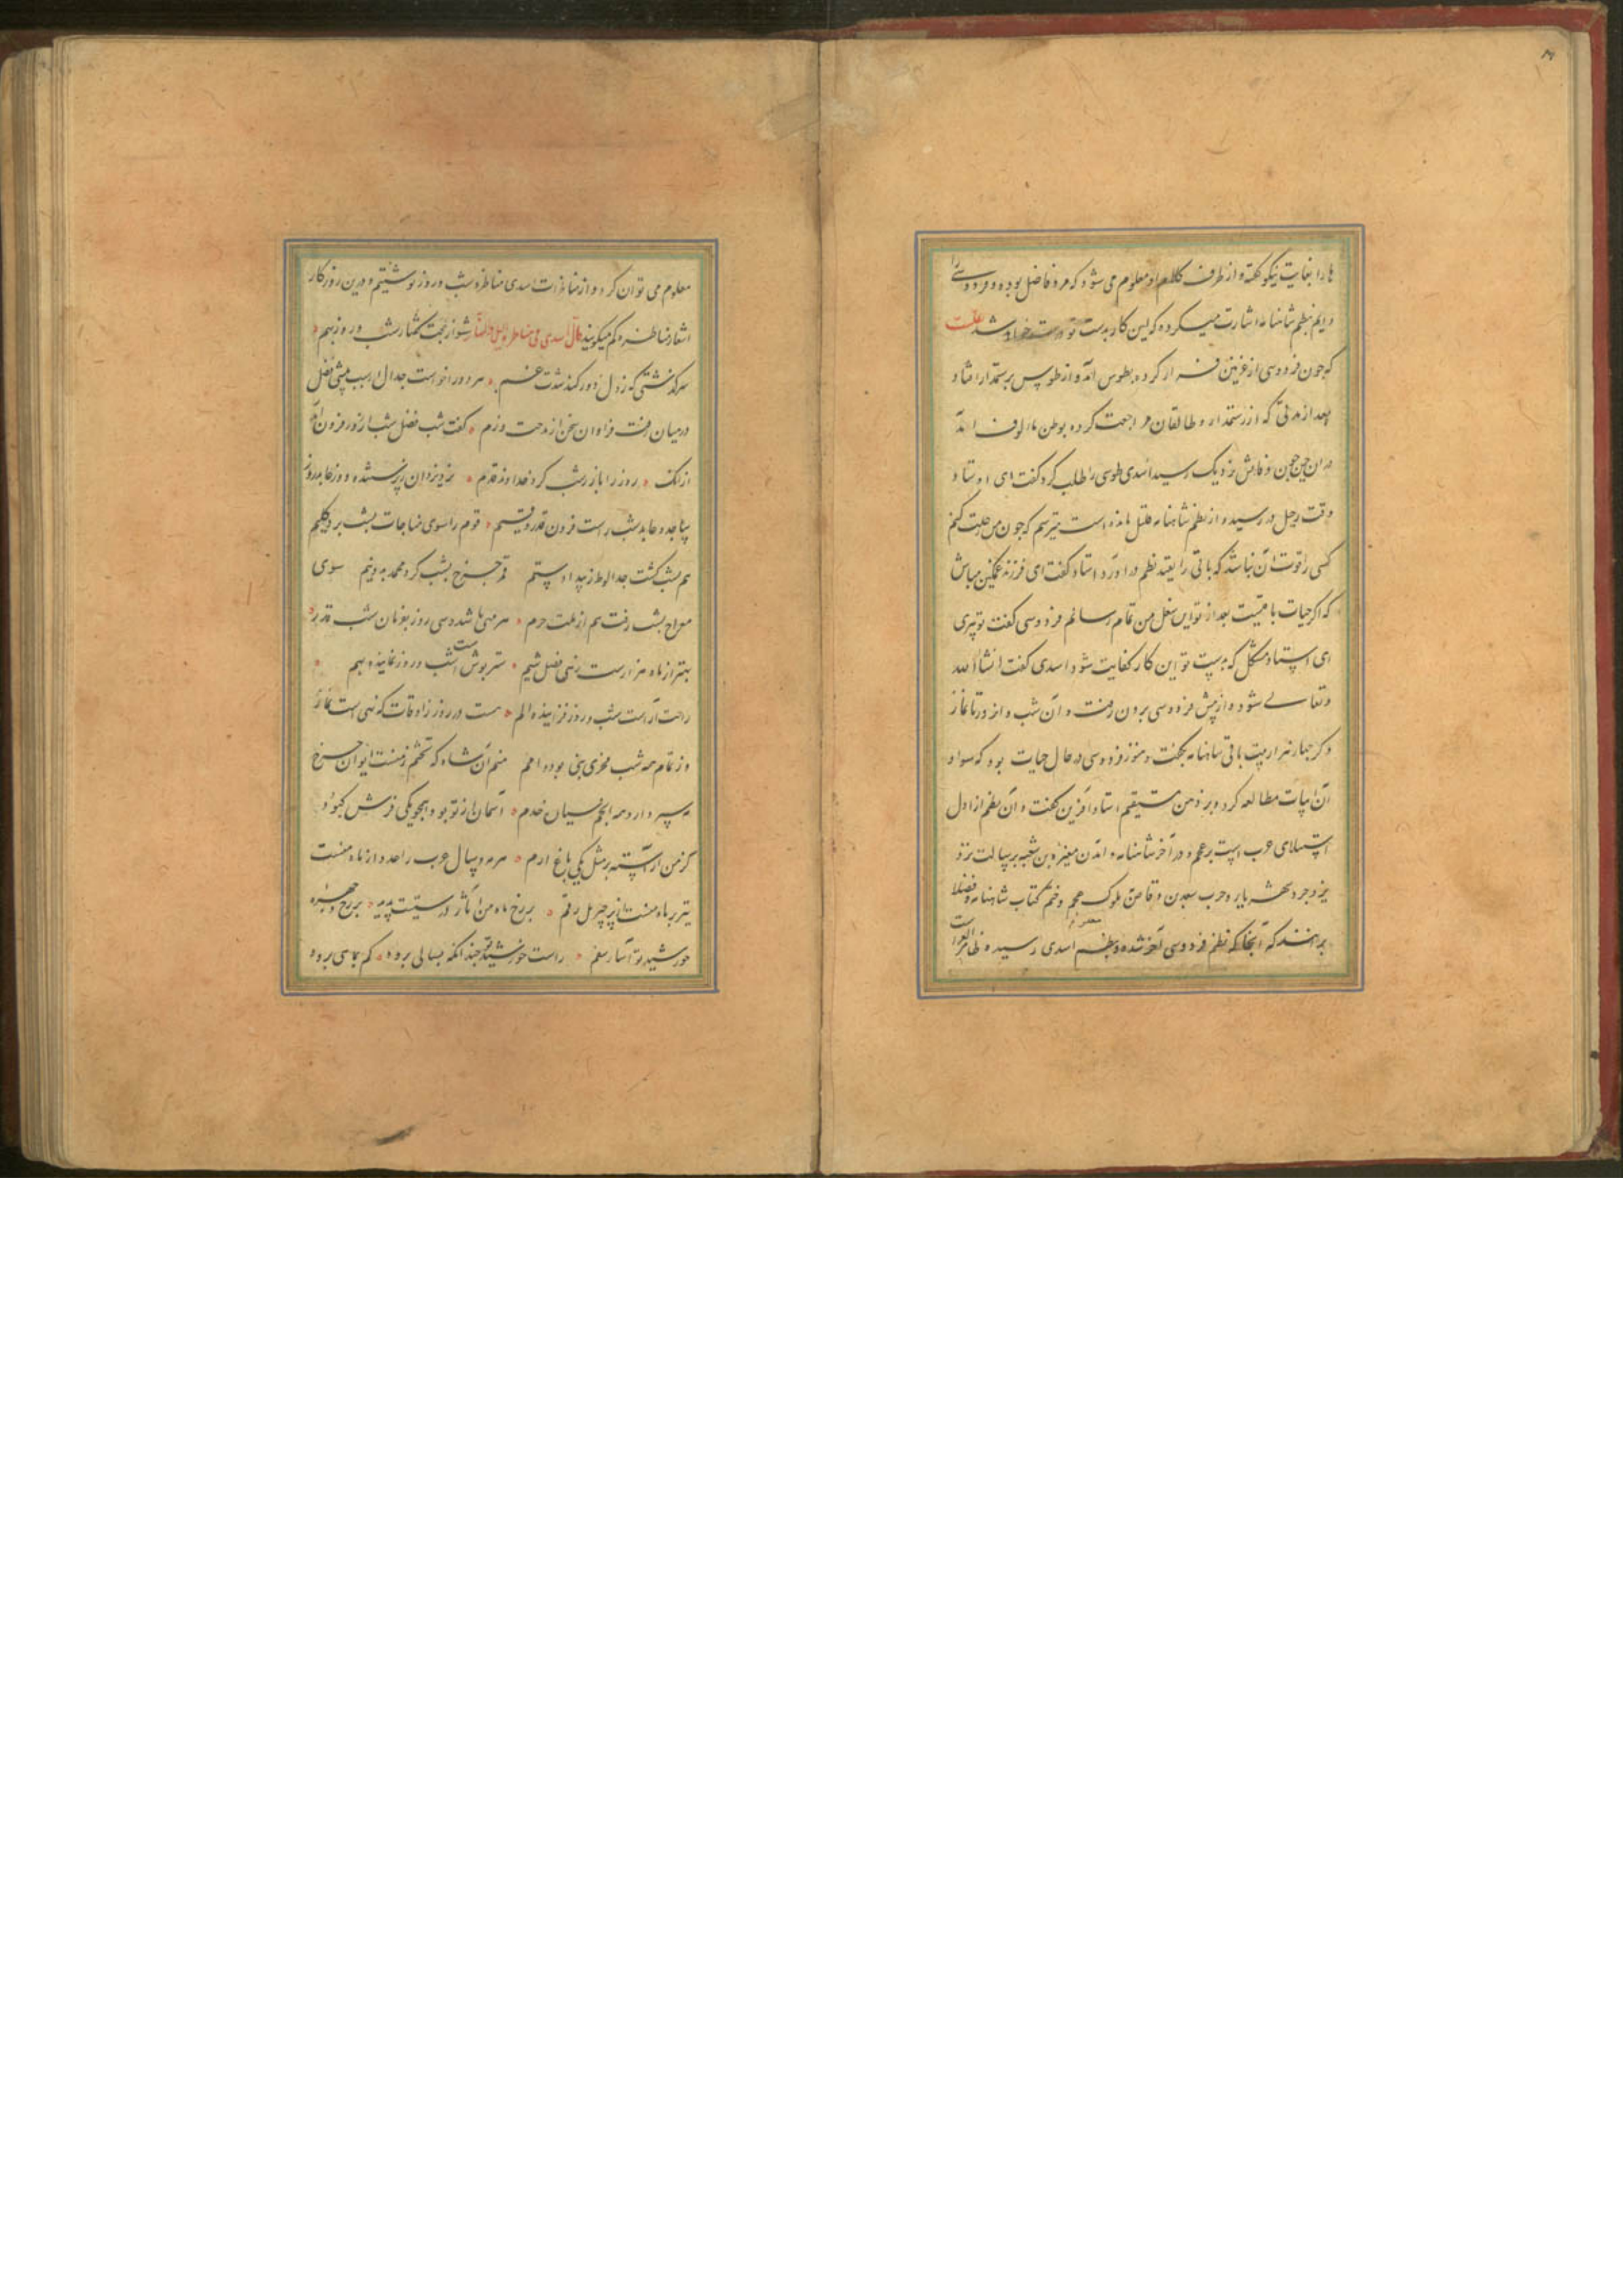 ها را بغایت نیکو گفته و از طرف کلام او معلوم می شود که مرد فاضل بوده و فردوسی را
دایم بنظم شاهنامه اشارت میکرده که این کار بدست تو درست خواهد شد
که چون فردوسی از غزنین فرار کرده بطوس آمد و از طوس برستمدار افتاد
بعد از مدتی که از رستمدار و طالقان مراجعت کرده بوطن مالوف آمد
در آن حین چون وفاتش نزدیک رسید اسدی طوسی را طلب کرد گفت ای اوستاد
وقت رحیل در رسید و از نظم شاهنامه قلیل مانده است میترسم که چون من رحلت کنم
کسی را قوت آن نباشد که باقی را بقید نظم در آورد استاد گفت ای فرزند غمگین مباش
که اگر حیات باقیست بعد از تو این شغل من تمام رسانم فردوسی گفت تو پیری
ای استاد مشکل که بدست تو این کار کفایت شود اسدی گفت انشاءالله
و تعالی شود و از پیش فردوسی برون رفت و آن شب و روز تا نماز
دگر چهار هزار بیت باقی شاهنامه بگفت و هنوز فردوسی در حال حیات بود که سواد
آن ابیات مطالعه کرد و بر ذهن مستقیم استاد آفرین گفت و آن نظم از اول
استیلای عرب است بر عجم و در آخر شاهنامه و آمدن مغیرة بن شعبه برسالت نزد
یزدجرد شهریار و حرب سعد بن وقاص ملوک عجم و ختم کتاب شاهنامه و فضلا
برانند که آنجا که نظم فردوسی آخر شده و بنظم اسدی رسیده ظاهرا
معلوم می توان کرد و از مناظرات اسدی مناظره شب و روز نوشتیم و درین روزگار
اشعار مناظره کم میگویند قال اسدی فی مناظره اللیل والنهار بشنو از حجت گفتار شب و روز بهم
سرگذشتی که ز دل دور کند شدت غم هر دو را خواست جدال از سبب بیشی فضل
در میان رفت فراوان سخن از مدحت و ذم گفت شب فضل شب از روز فزون آمد
ازانک روز را باز ز شب کرد خداوند قدم نزد یزدان ز پرستنده و عابد روز
ساجد و عابد شب راست فزون قدر و قیم قوم را سوی مناجات بشب برد کلیم
هم بشب گشت جدا لوط ز بیداد و ستم قمر چرخ بشب کرد محمد بدو نیم سوی
معراج بشب رفت هم از بیت حرم هر مهی باشد سی روز بفرقان شب قدر
بهتر از ماه هزارست ز بس فضل شیم سترپوش است شب و روز نماینده بهم
راحت آراست شب و روز فزاینده الم هست در روز ز اوقات که نهی است نماز
وز تمام همه شب فخر نبی بود و امم منم آن شاه که تختم زمنست ایوان چرخ
مه سپهدار و همه انجم سیاره خدم آسمان از تو بود همچو یکی فرش کبود
کز من آراسته بر مثل یکی باغ ارم هر مه و سال عرب را عدد از ماه منست
نیز بر ماه منست از پر جبریل رقم بر رخ ماه من آثار درستیست پدید بر رخ و چهره
خورشید تو آثار سقم راست خورشید تو چندانکه بسالی برود کم بماهی برود